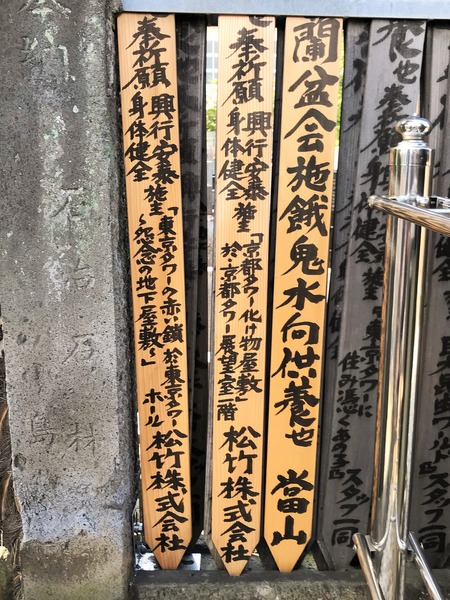 蘭盆会施餓鬼水向供養也 當山
奉祈願 興行安泰 身体健全 施主 「京都タワー化け物屋敷」 於・京都タワー展望室二階 松竹株式会社
奉祈願 興行安泰 身体健全 施主 「東京タワーの赤い鎖 〜怨念の地下屋敷〜」 於東京タワーホール 松竹株式会社
養也 奉祈願 身体健全 東京タワーに 住み憑くあの子 スタッフ一同
スタッフ一同